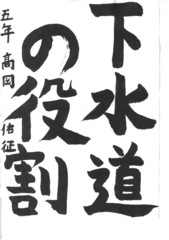 下水道
の役割
五年 髙岡 佑征